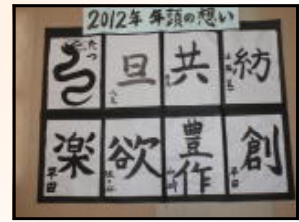 2012年 年頭の想い
たつ
旦
共
紡
楽
平田
欲
豊作
創
平田